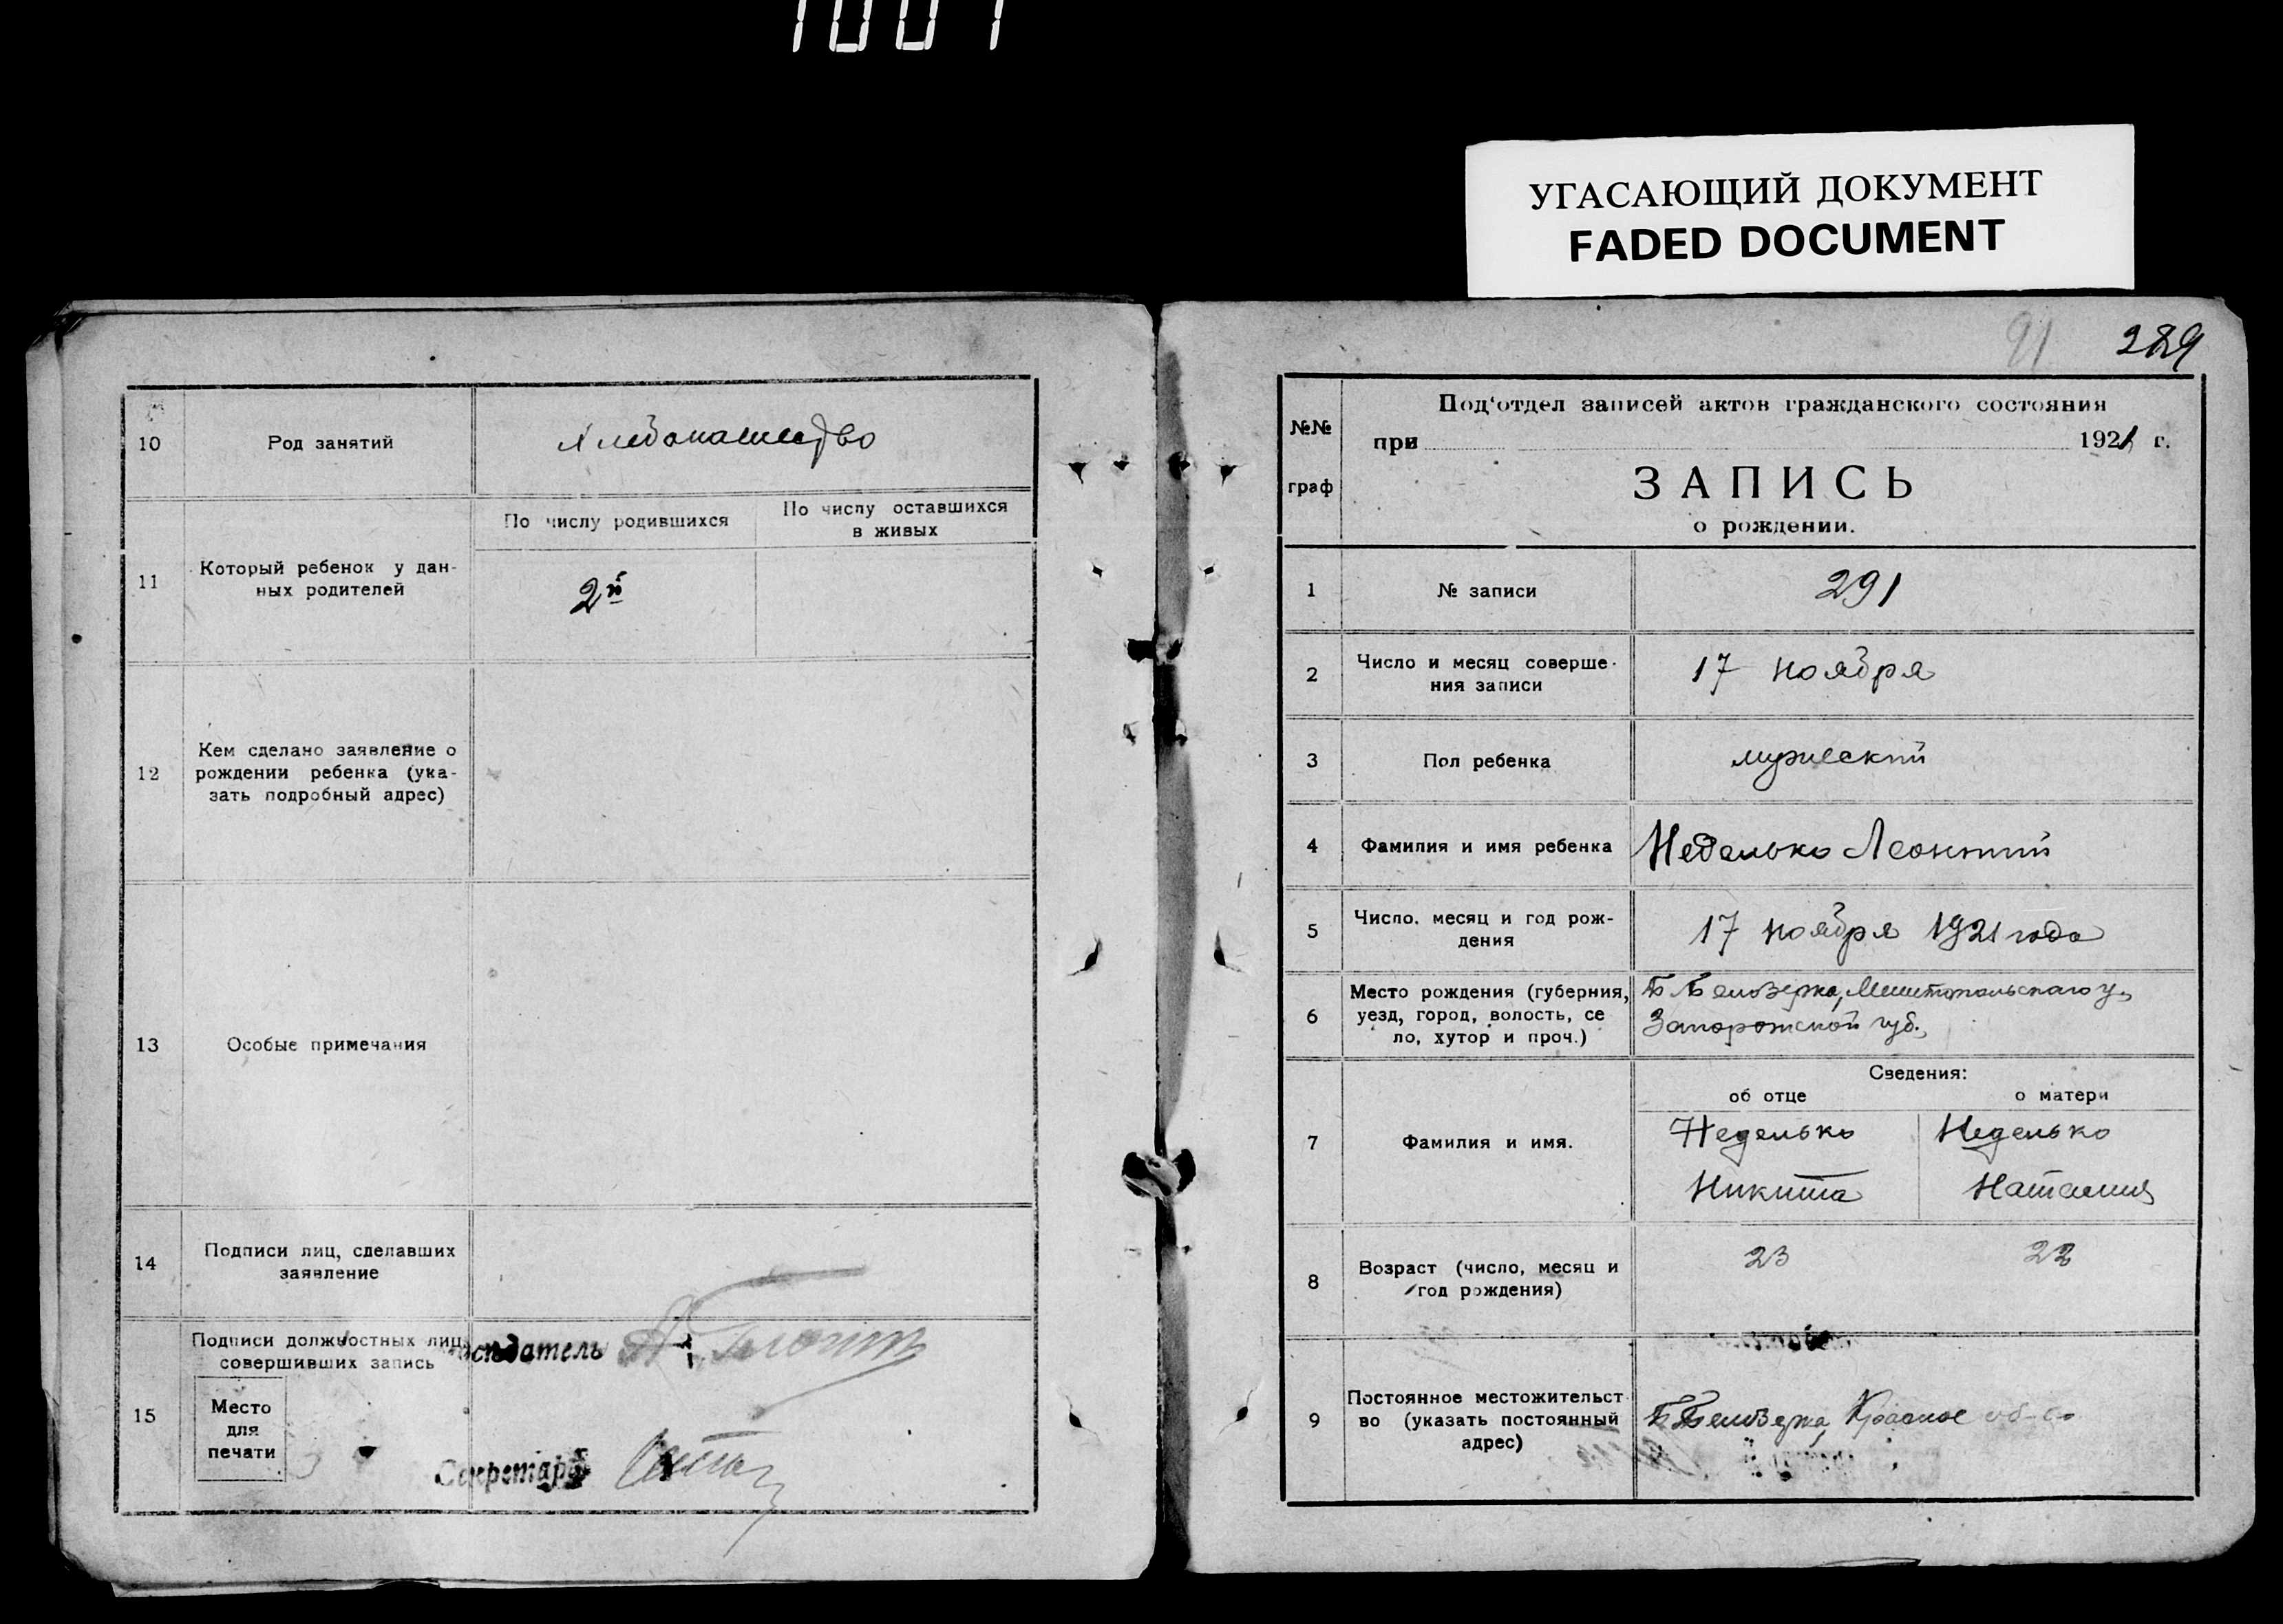 УГАСАЮЩИЙ ДОКУМЕНТ
FADED DOCUMENT
10
Род занятий
Хлебопашество
11
Который ребенок у дан-
ных родителей
По числу родившихся
По числу оставшихся
в живых
2й
12
Кем сделано заявление о
рождении ребенка (ука-
зать подробный адрес)
13
Особые примечания
14
Подписи лиц, сделавших
заявление
15
Подписи должностных лиц,
совершивших запись
Место
для
печати
Секретарь
91
289
№№
граф
Под'отдел записей актов гражданского состояния
при 1921 г.
ЗАПИСЬ
о рождении.
1
№ записи
291
2
Число и месяц соверше-
ния записи
17 ноября
3
Пол ребенка
мужеский
4
Фамилия и имя ребенка
Неделько Леонтий
5
Число, месяц и год рож-
дения
17 ноября 1921 года
6
Место рождения (губерния,
уезд, город, волость, се
ло, хутор и проч.)
Б Белозерка, Мелитопольскаго у.
Запорожской губ.
Сведения:
об отце
о матери
7
Фамилия и имя.
Неделько
Никита
Неделько
Наталия
8
Возраст (число, месяц и
год рождения)
23
22
9
Постоянное местожительст
во (указать постоянный
адрес)
Б Белозерка, Красное об-во